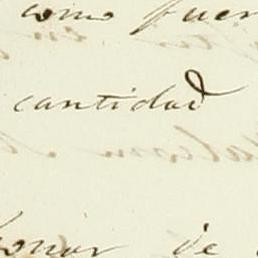 como fuer
cantidad
onor de